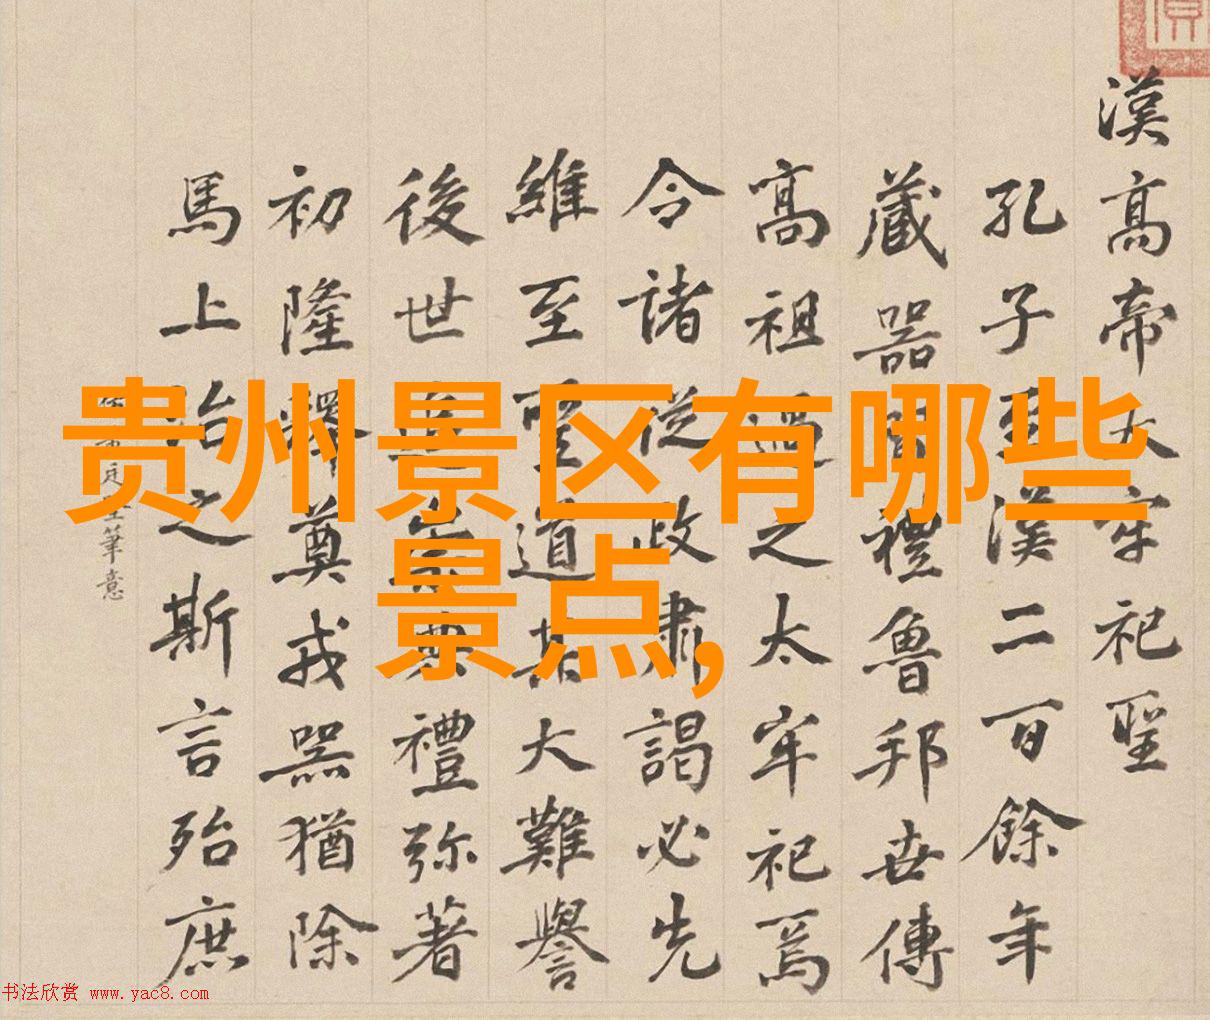 贵州景区有哪些
景点,
漢高帝太牢祀聖
孔子至漢二百餘年
藏器禮魯邦世傳
高祖過之太牢祀焉
令諸從政肅謁必先
維至聖道甚大難譽
後世禮弥著
初隆釋奠戎器猶除
馬上治之斯言殆庶
筆意
书法欣赏 www.yac8.com